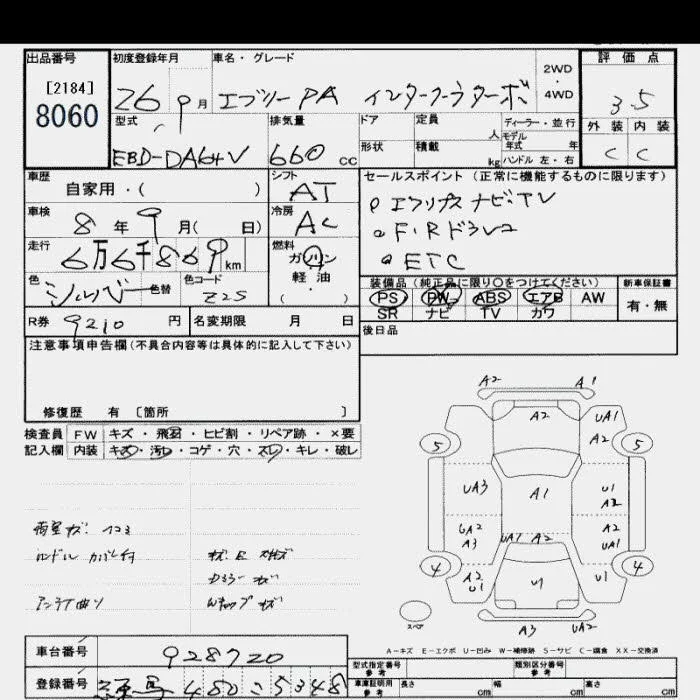 出品番号
[2184]
8060
初度登録年月
26 9月
車名・グレード
エブリー PA インタークーラターボ
2WD
・
4WD
評価点
3.5
外装 内装
C C
型式
EBD-DA64V
排気量
660 cc
ドア
定員
人
形状
積載
kg
ディーラー・並行
モデル
年式 年
ハンドル 左・右
車歴
自家用・( )
シフト
AT
セールスポイント (正常に機能するものに限ります)
エアリアス ナビ・TV
F・Rドラレコ
ETC
車検
8年 9月( 日)
冷房
AC
走行
6万6千869km
燃料
ガソリン
軽油
( )
色
シルバー
色替
色コード
Z2S
装備品 (純正品に限り○をつけてください)
PS PW ABS エアB AW
SR ナビ TV カワ
新車保証書
有・無
R券 9210 円
名変期限 月 日
後日品
注意事項申告欄(不具合内容等は具体的に記入して下さい)
修復歴 有 [箇所 ]
検査員 FW キズ・飛石・ヒビ割・リペア跡・×要
記入欄 内装 キズ・汚レ・コゲ・穴・スレ・キレ・破レ
ハンドル カバー付
A2 A1
A2
UA1
A2
5 5
UA3
A1
U1
A2
UA2
A3
UA1 A2
A2
UA1
4 4
A2
U1
U1
U1
スペア
A3 UA2
A-キズ E-エクボ U-凹み W-補修跡 S-サビ C-腐食 XX-交換済
車台番号 928720
登録番号 群馬 480 こ 5348
型式指定番号
参考
類別区分番号
参考
車庫証明用
参考
長さ cm
幅 cm
高さ cm